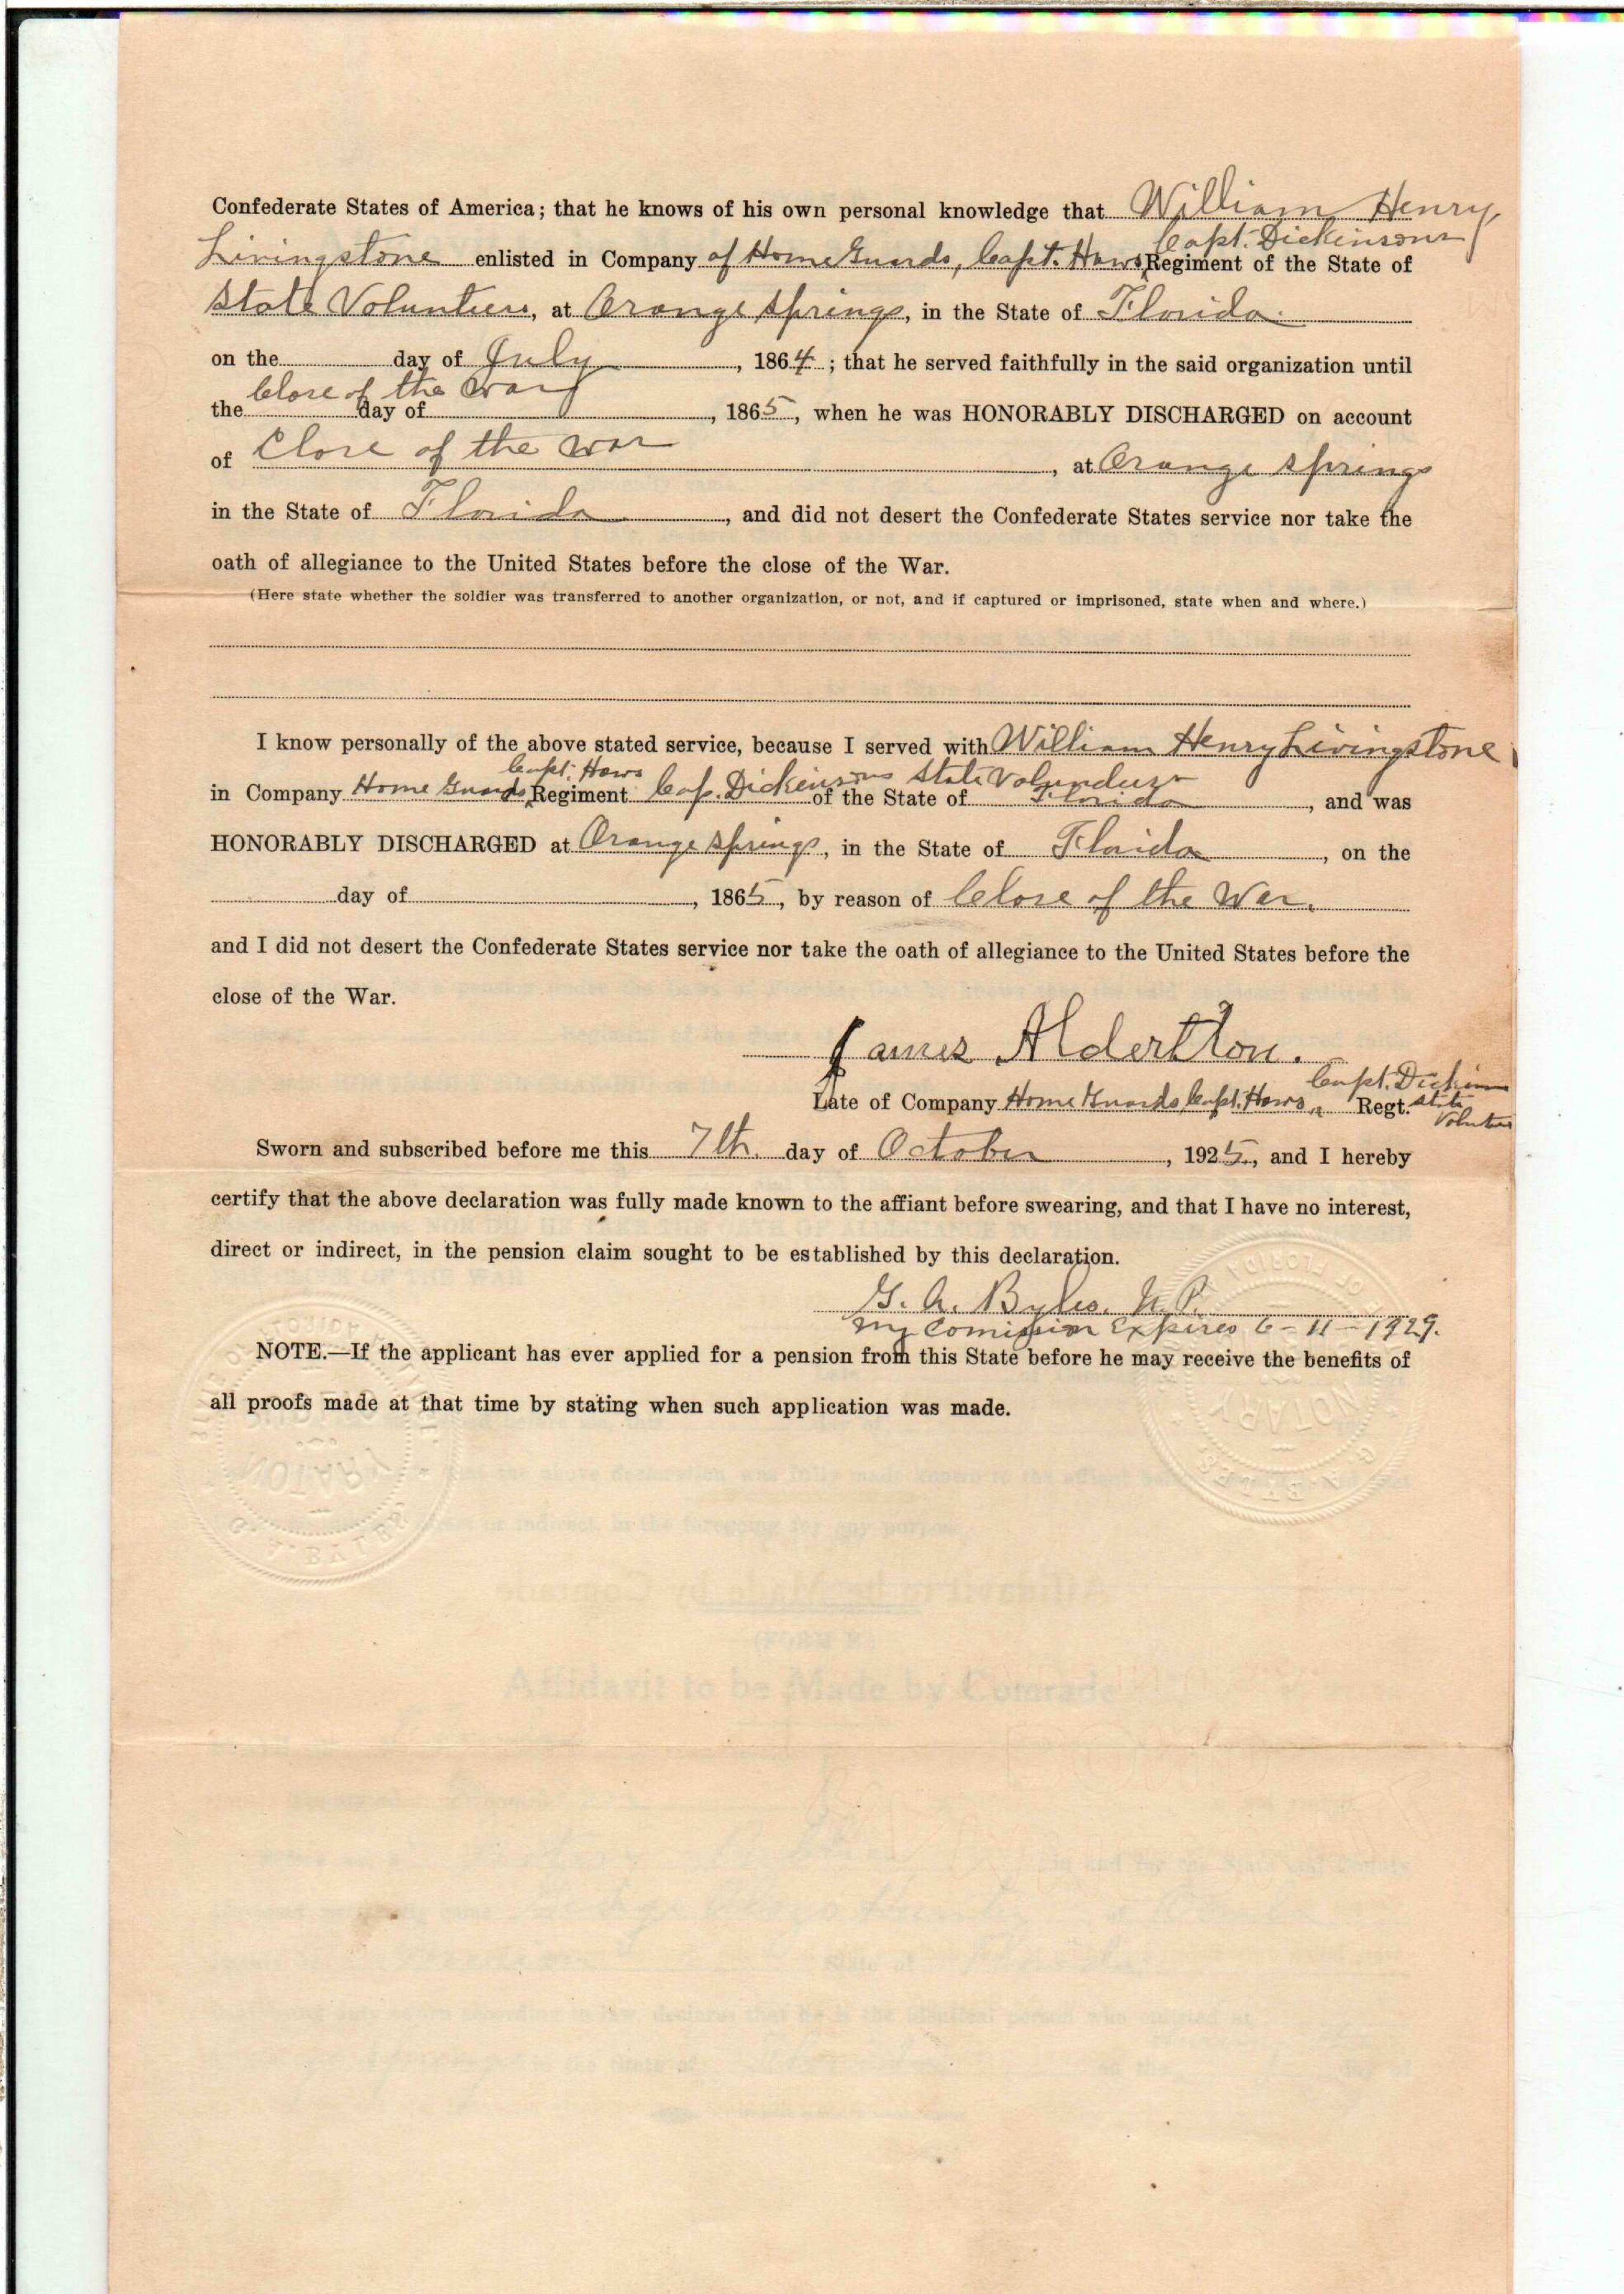 Confederate States of America; that he knows of his own personal knowledge that William Henry
Capt. Dickinsons
Livingstone enlisted in Company of Home Guards, Capt. Haws Regiment of the State of
State Volunteers, at Orange Springs, in the State of Florida
on the day of July, 1864; that he served faithfully in the said organization until
Close of the War
the day of, 1865, when he was HONORABLY DISCHARGED on account
of Close of the War, at Orange Springs
in the State of Florida, and did not desert the Confederate States service nor take the
oath of allegiance to the United States before the close of the War.
(Here state whether the soldier was transferred to another organization, or not, and if captured or imprisoned, state when and where.)
I know personally of the above stated service, because I served with William Henry Livingstone
Capt. Haws State
in Company Home Guards Regiment Cap. Dickinsons of the State of Florida, and was
HONORABLY DISCHARGED at Orange Springs, in the State of Florida, on the
day of, 1865, by reason of Close of the War.
and I did not desert the Confederate States service nor take the oath of allegiance to the United States before the
close of the War.
James Alderton.
Capt. Dickins
Late of Company Home Guards Capt. Haws, Regt. State
Sworn and subscribed before me this 7th. day of October, 1925, and I hereby
certify that the above declaration was fully made known to the affiant before swearing, and that I have no interest,
direct or indirect, in the pension claim sought to be established by this declaration.
G. A. Byles. N. P.
My Comission Expires 6-11-1929.
NOTE.—If the applicant has ever applied for a pension from this State before he may receive the benefits of
all proofs made at that time by stating when such application was made.
Affidavit to be Made by Comrade